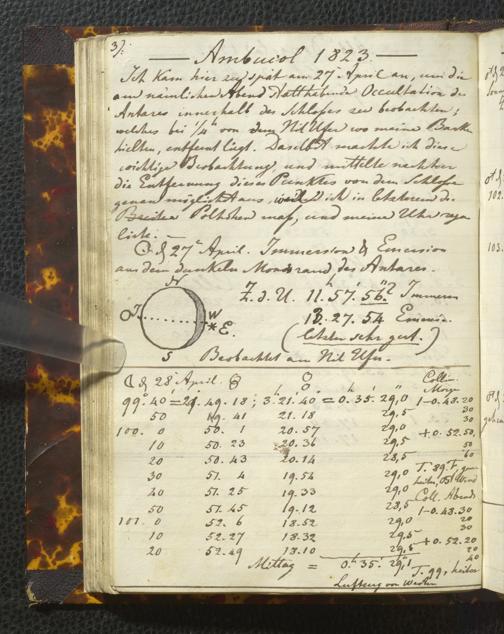 3):
Ambucol 1823.
Ich kam hier zu spät am 27. April an, um die
am nämlichen Abend Statthabende Occultation des
Antares innerhalb des Schlosses zu beobachten;
welches bei 1/4 h von dem Nil Ufer wo meine Barke
hielten, entfernt liegt. Daselbst machte ich diese
wichtige Beobachtung, und mittelte nachher
die Entfernung dieses Punktes von dem Schlosse
genau möglichst aus, weil ich in letzterem die
Breiten Polhöhen maß, und meine Uhr regu
lirte.
27 April. Immersion & Emersion
aus dem dunkeln Mondrand des Antares.
N
O J W * E.
S
Z. d. U. 11. 57. 56. Immers
13. 27. 54 Emersio.
(letzter sehr gut.)
Beobachtet am Nil Ufer.
28 April.
Collim
Morg
99°. 40 = 21. 49. 18; 3. 21. 40 = 0. 35. 29,0 1-0. 48. 20
50 49. 41 21. 18 29,5 30
100. 0 50. 1 20. 57 29,0 +0. 52. 50
10 50. 23 20. 36 29,5 50
20 50. 43 20. 14 28,5 60
30 51. 4 19. 54 29,0 T. 89. F.
40 51. 25 19. 33 29,0 Coll. Abends
50 51. 45 19. 12 28,5 1-0. 48. 30
101. 0 52. 6 18. 52 29,0 20
10 52. 27 18. 32 29,5 30
20 52. 49 18. 10 29,5 +0. 52. 20
Mittag = 0. 35. 29,1 T. 99, heiter
Luftzug von Westen